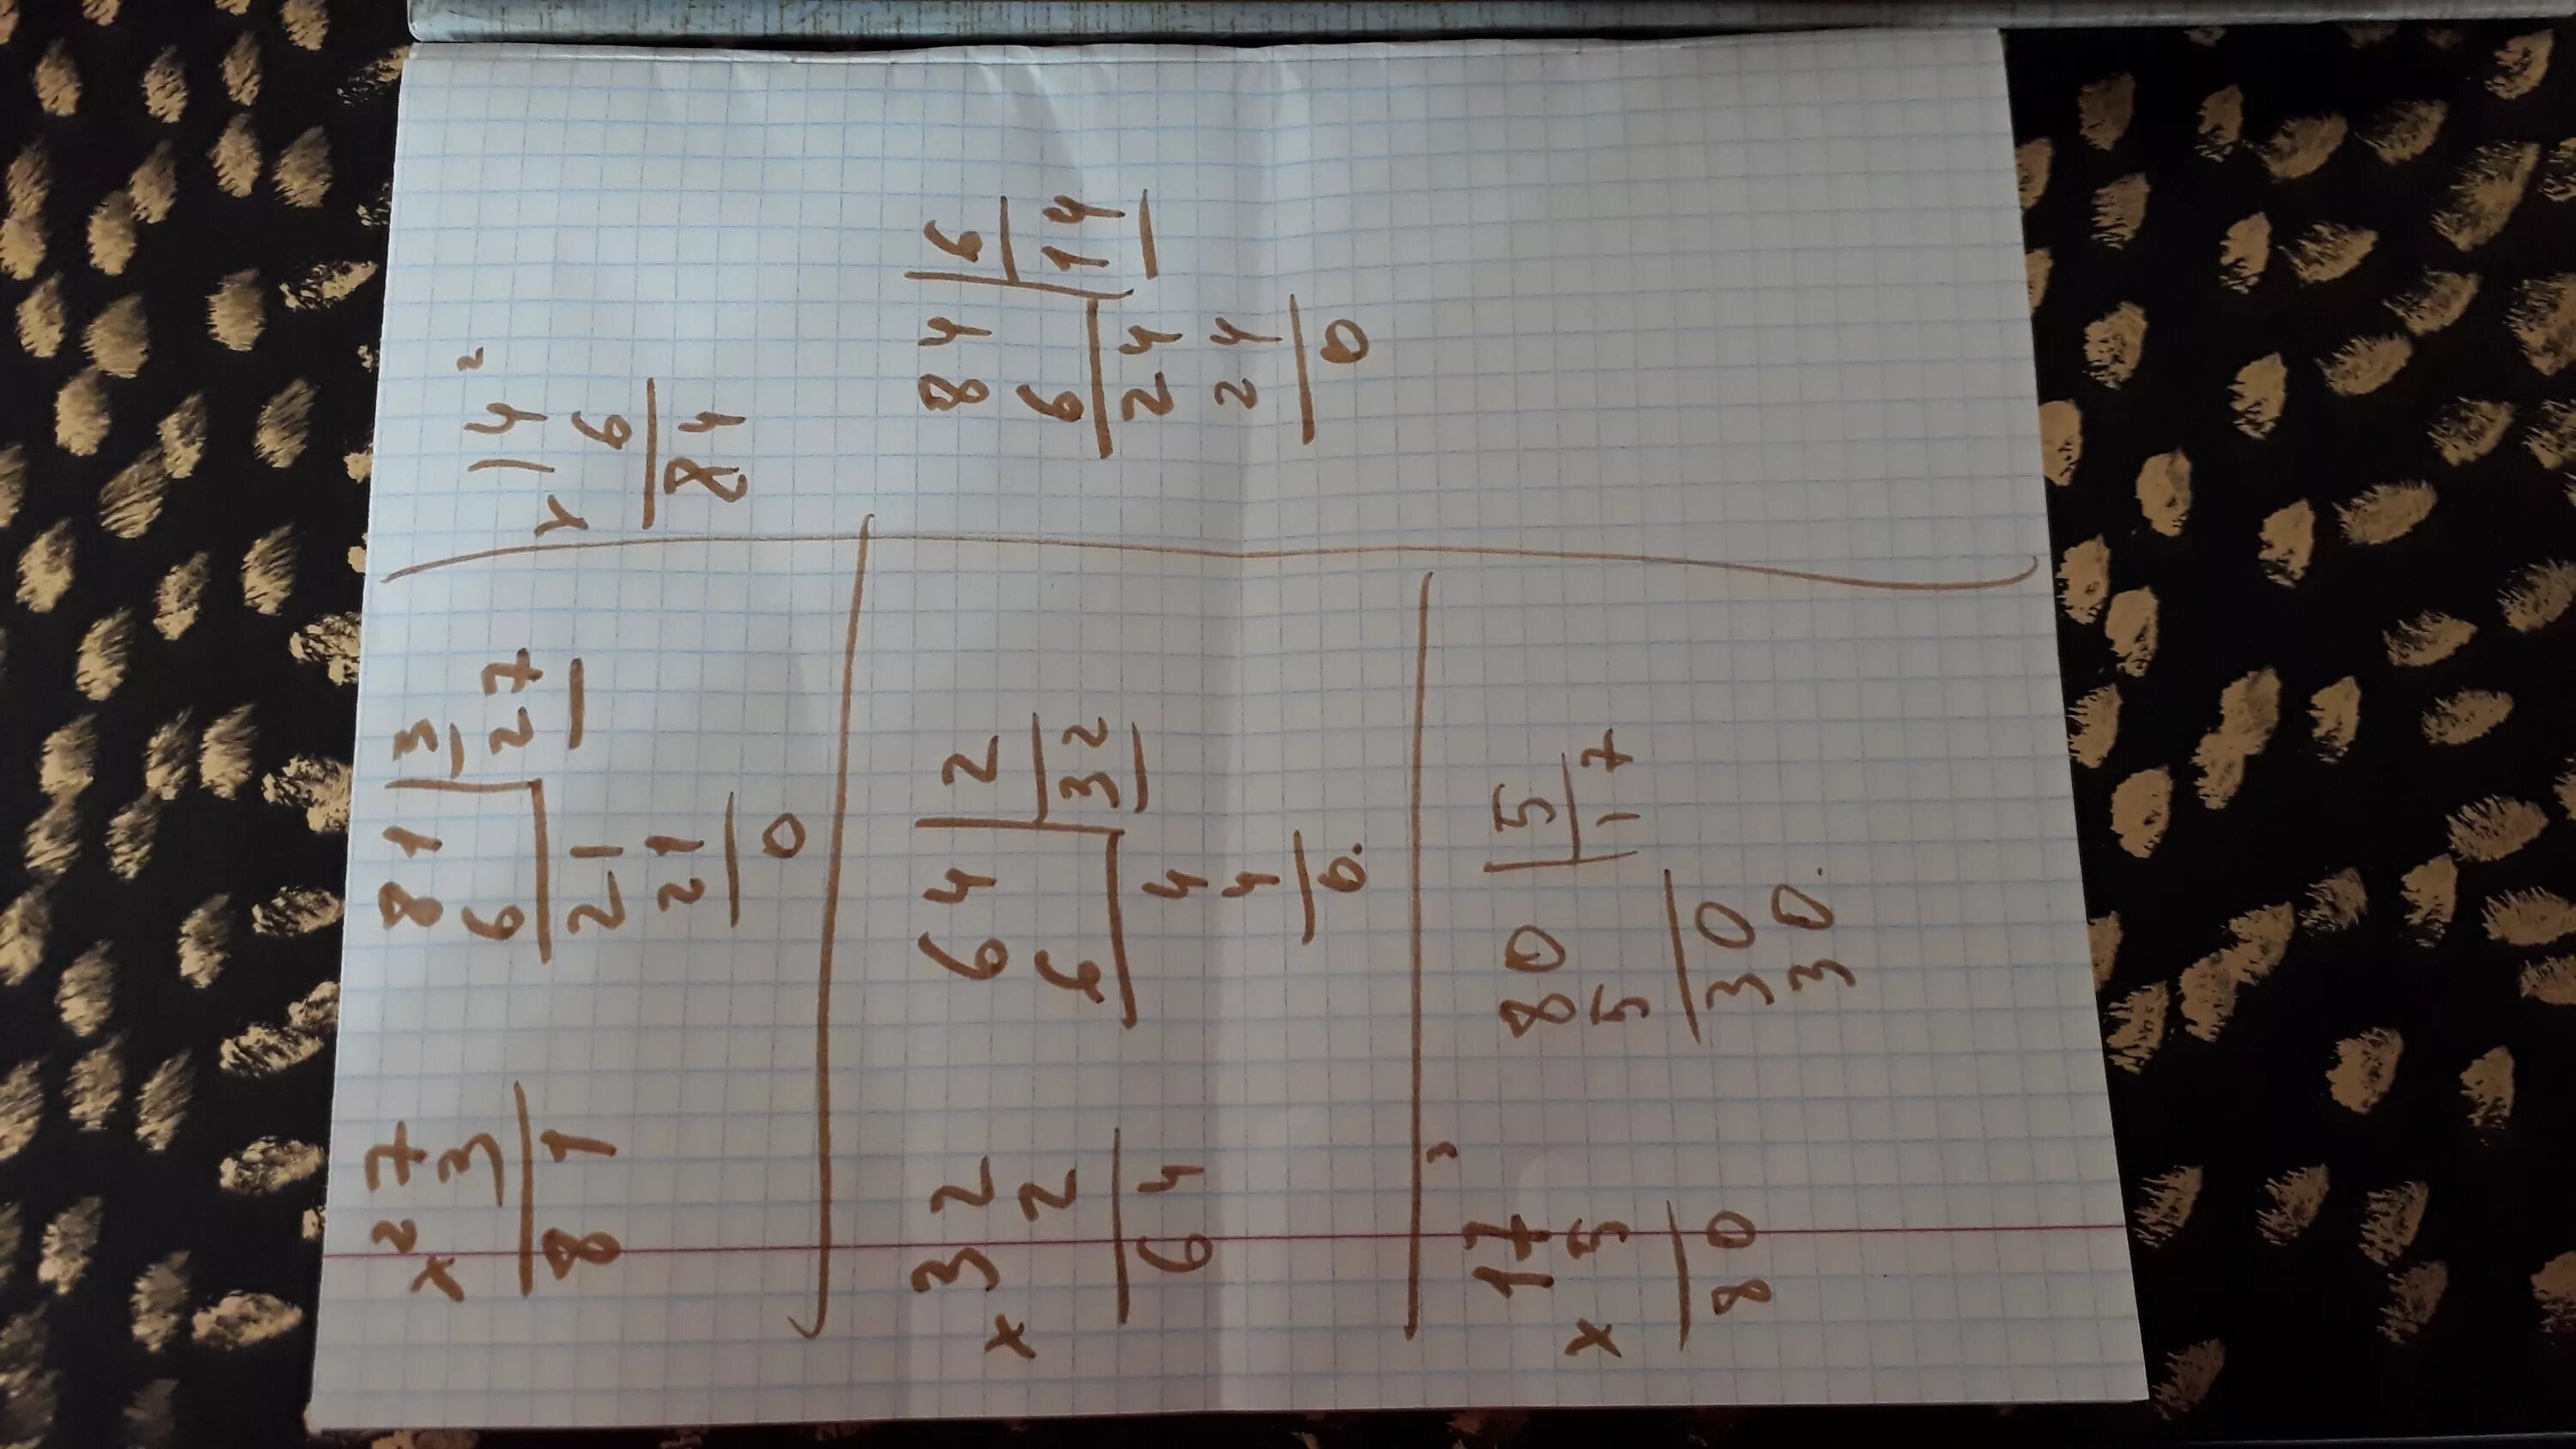 27
x 3
81
81 3
6 27
21
21
0
14 2
x 6
84
32
x 2
64
64 2
6 32
4
4
0.
84 6
6 14
24
24
0
3
17
x 5
80
80 5
5 17
30
30.